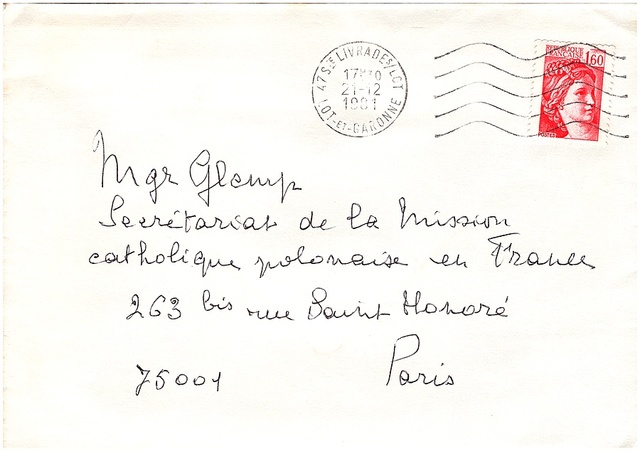 47 STE LIVRADE S/LOT
17H10
21-12
1981
LOT-ET-GARONNE
REPUBLIQUE
FRANCAISE 1,60
POSTES
Mgr Glemp
Secrétariat de la Mission
catholique polonaise en France
263 bis rue Saint Honoré
75001 Paris